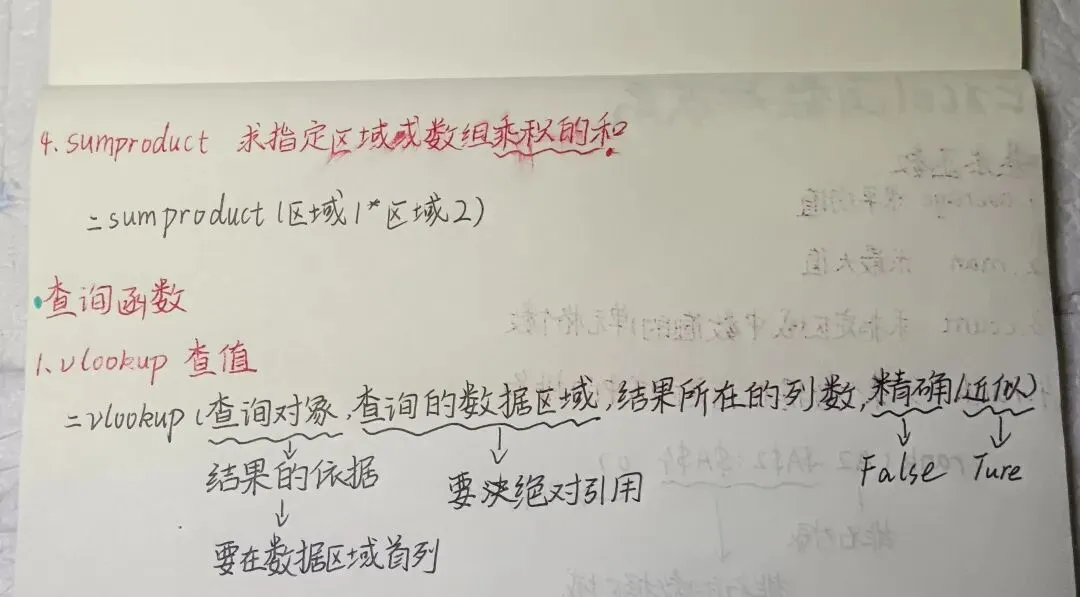 4. sumproduct 求指定区域或数组乘积的和
=sumproduct(区域1*区域2)
·查询函数
1、vlookup 查值
=vlookup(查询对象,查询的数据区域,结果所在的列数,精确(近似)
结果的依据 要决绝对引用 False Ture
要在数据区域首列